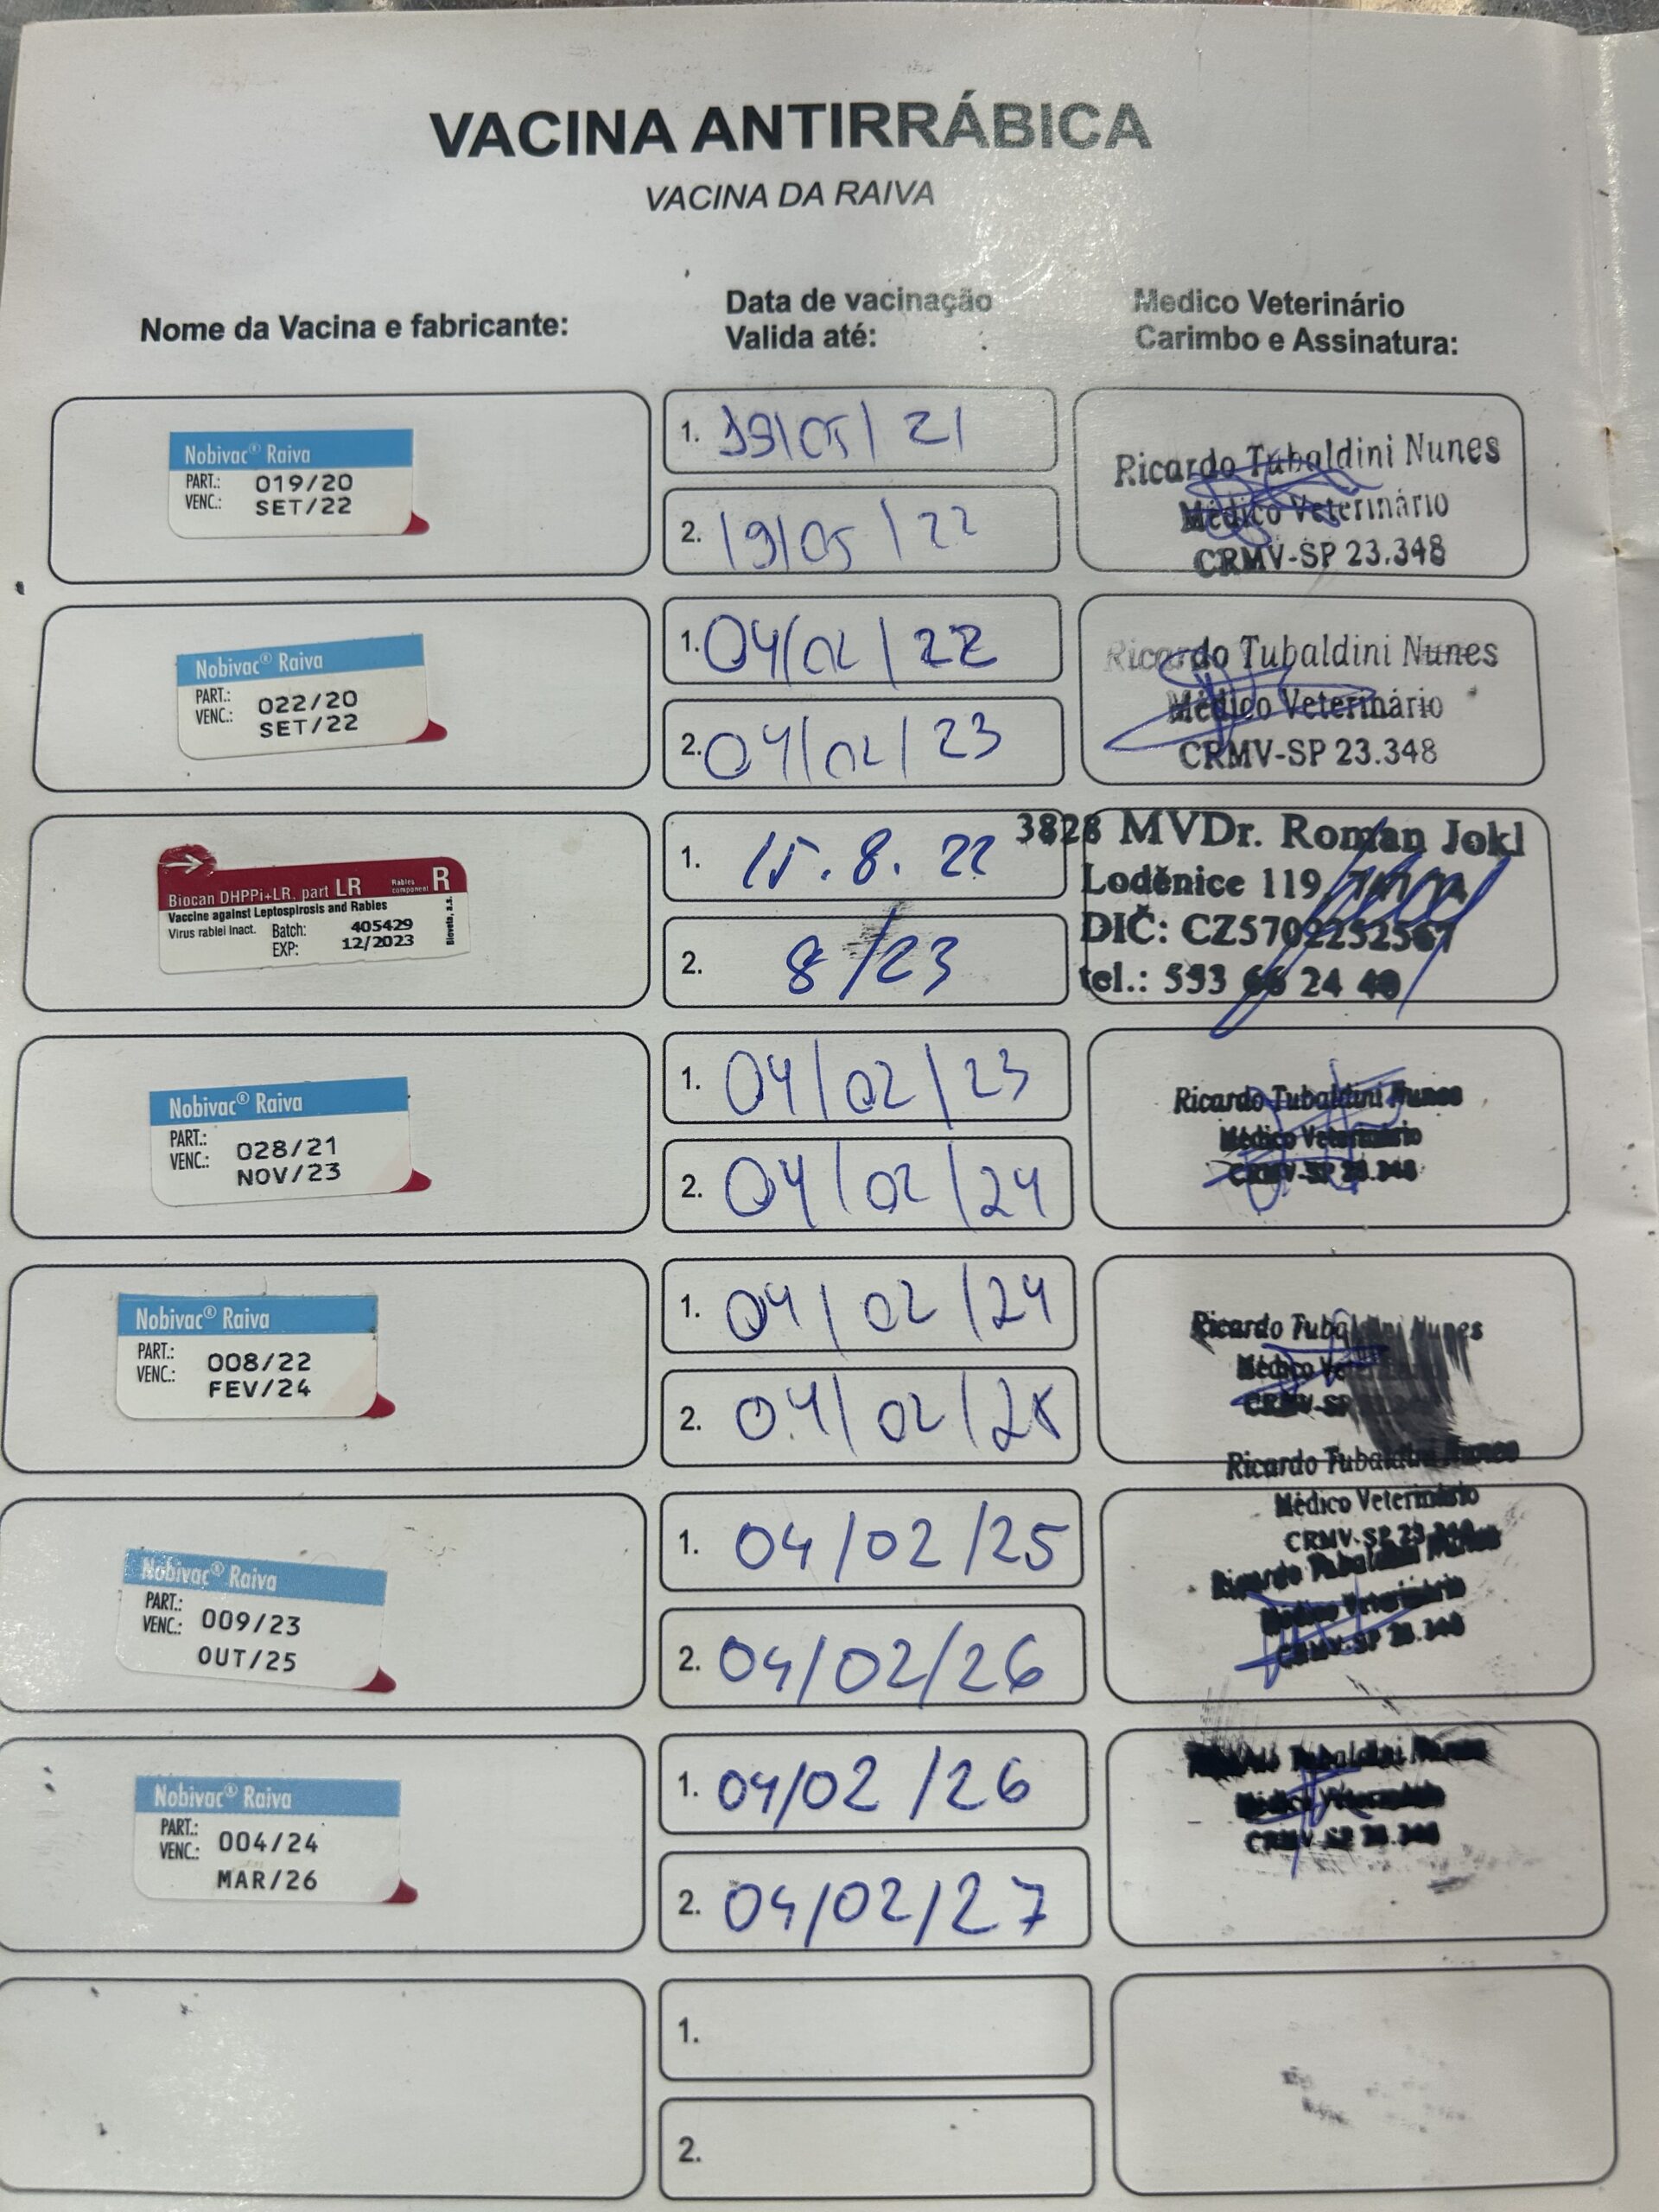 VACINA ANTIRRÁBICA
VACINA DA RAIVA
Nome da Vacina e fabricante:
Data de vacinação
Valida até:
Medico Veterinário
Carimbo e Assinatura:
Nobivac® Raiva
PART.: 019/20
VENC.: SET/22
1. 19/05/21
2. 19/05/22
Ricardo Tubaldini Nunes
Médico Veterinário
CRMV-SP 23.348
Nobivac® Raiva
PART.: 022/20
VENC.: SET/22
1. 04/02/22
2. 04/02/23
Ricardo Tubaldini Nunes
Médico Veterinário
CRMV-SP 23.348
Biocan DHPPi+LR, part LR Rabies component R
Vaccine against Leptospirosis and Rabies
Virus rabiei inact. Batch: 405429
EXP: 12/2023
Bioveta, a.s.
1. 15.8.22
2. 8/23
3828 MVDr. Roman Jokl
Loděnice 119
DIČ: CZ5702252567
tel.: 533 66 24 40
Nobivac® Raiva
PART.: 028/21
VENC.: NOV/23
1. 04/02/23
2. 04/02/24
Ricardo Tubaldini Nunes
Médico Veterinário
CRMV-SP 23.348
Nobivac® Raiva
PART.: 008/22
VENC.: FEV/24
1. 04/02/24
2. 04/02/25
Ricardo Tubaldini Nunes
Médico
CRMV-SP
Ricardo Tubaldini Nunes
Médico Veterinário
CRMV-SP 23.348
Nobivac® Raiva
PART.: 009/23
VENC.: OUT/25
1. 04/02/25
2. 04/02/26
Ricardo Tubaldini Nunes
Médico Veterinário
CRMV-SP 23.348
Nobivac® Raiva
PART.: 004/24
VENC.: MAR/26
1. 04/02/26
2. 04/02/27
Tubaldini Nunes
Médico Veterinário
CRMV-SP 23.348
1.
2.